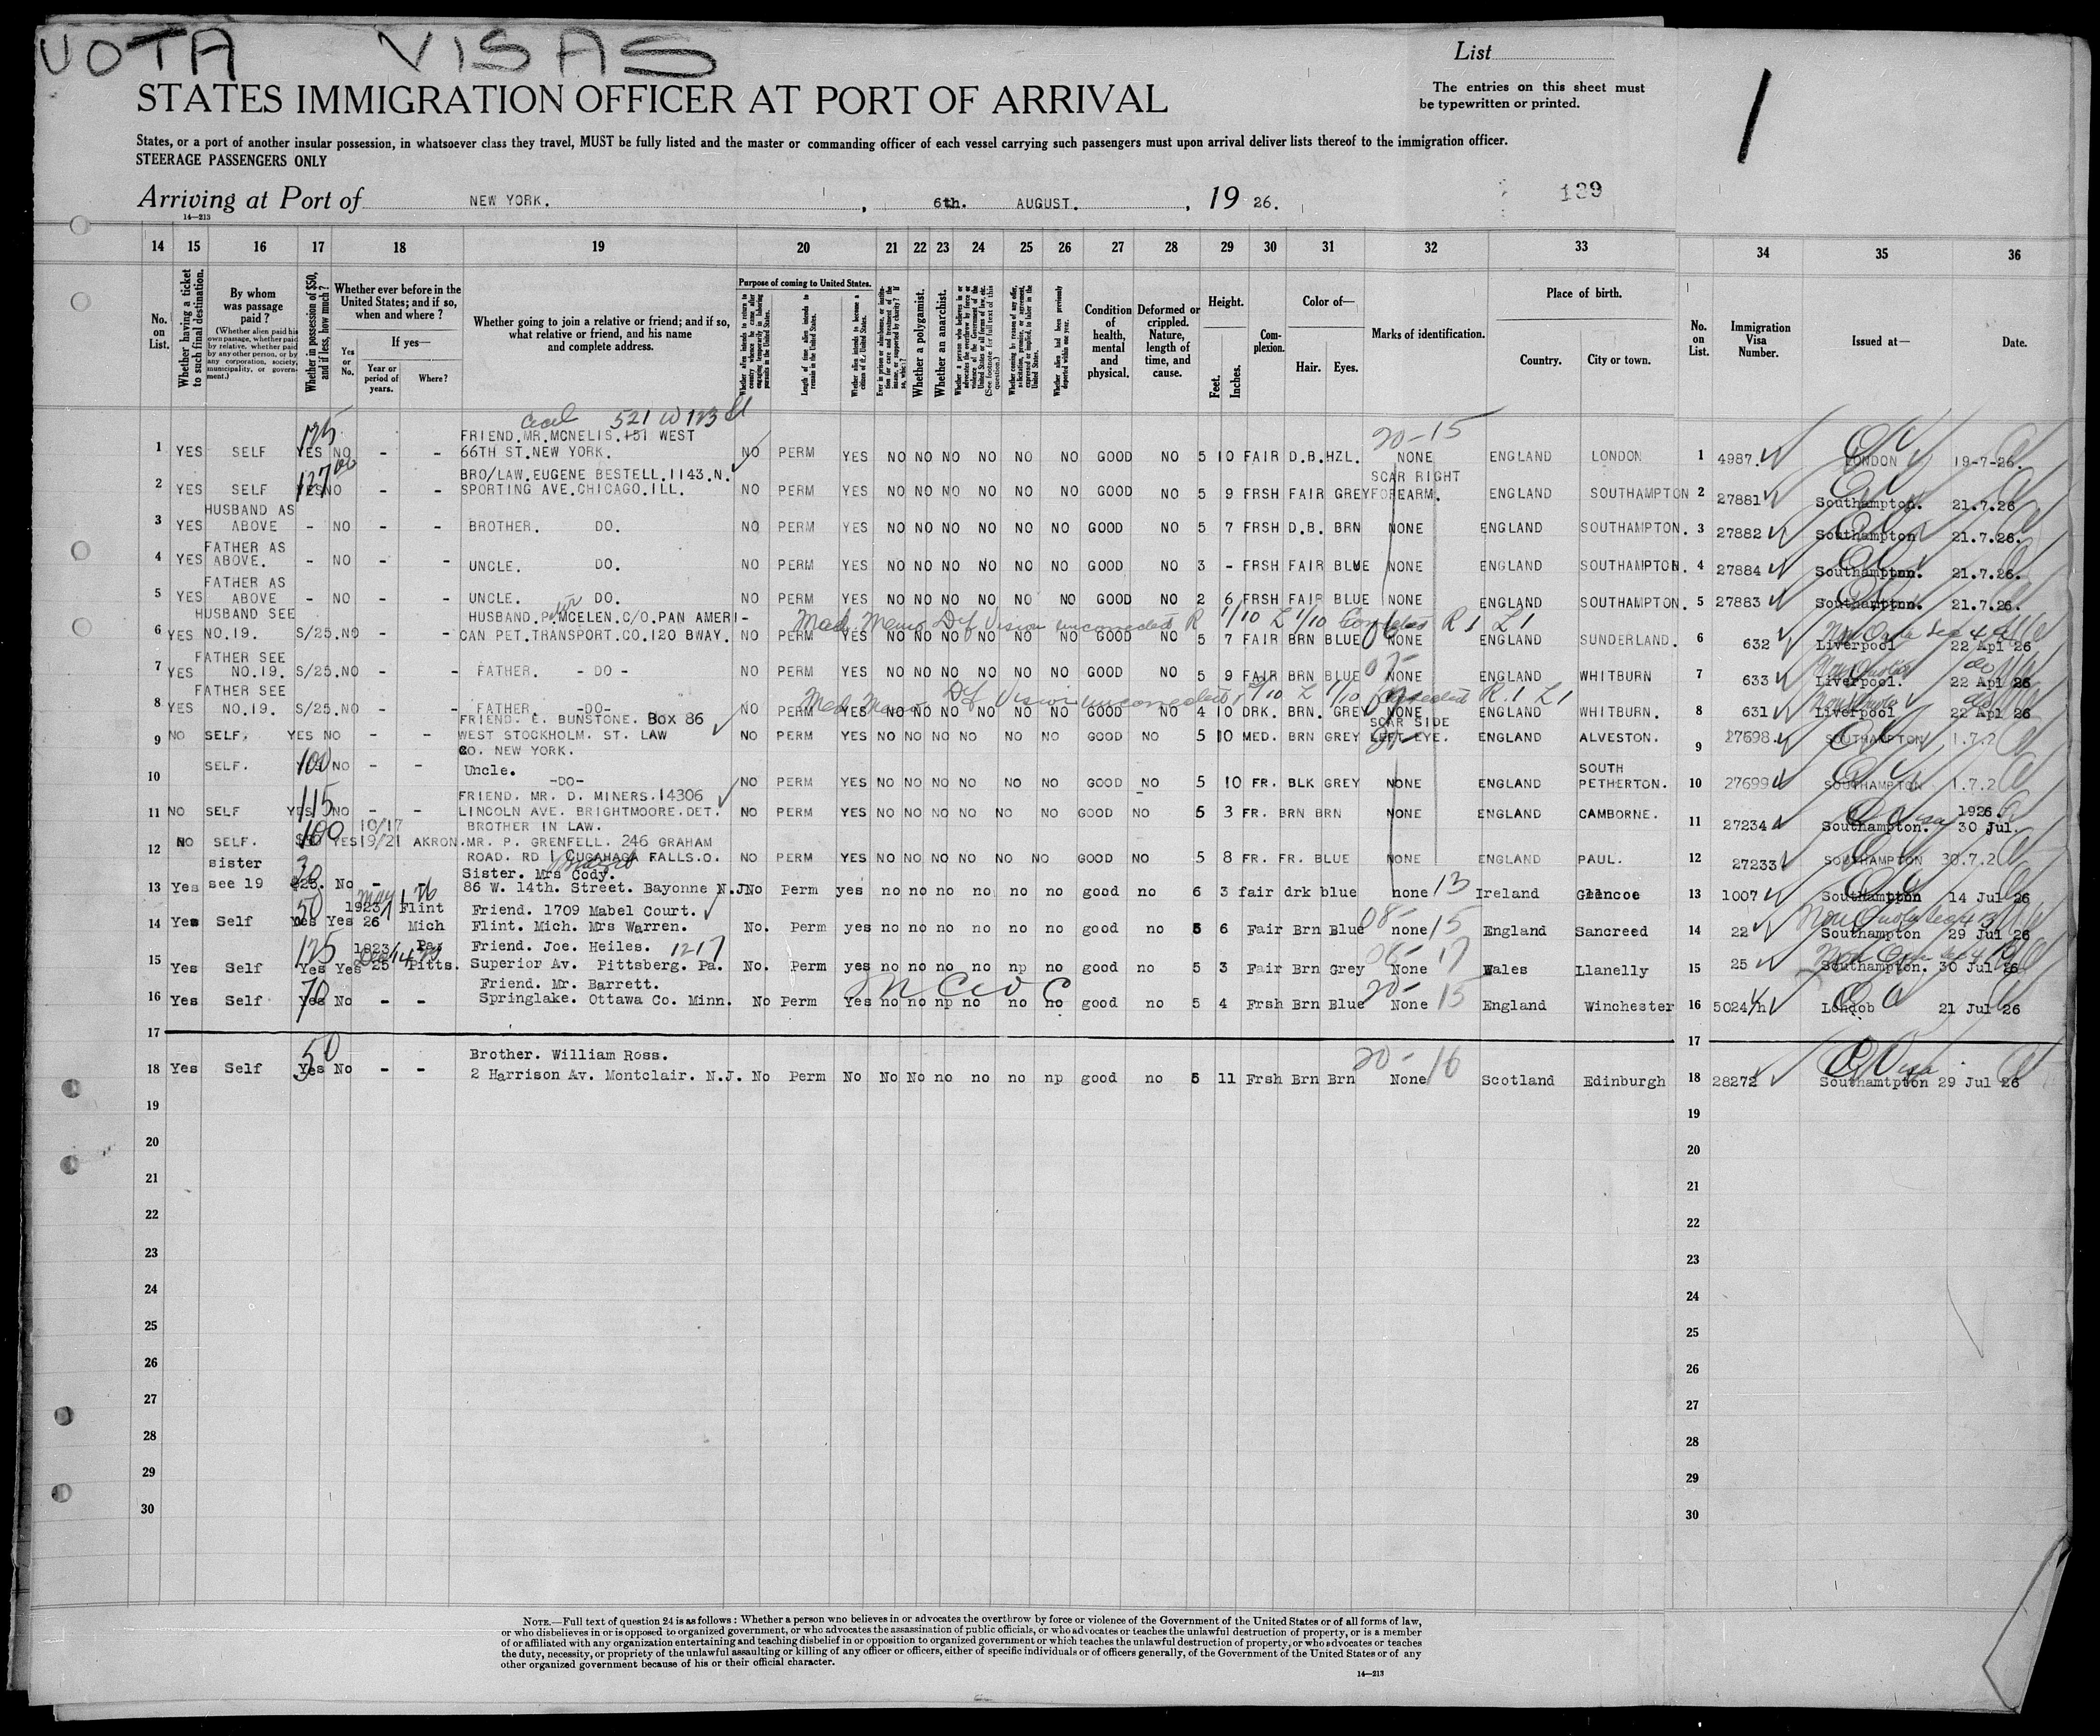 UOTA VISAS
List
STATES IMMIGRATION OFFICER AT PORT OF ARRIVAL
The entries on this sheet must
be typewritten or printed.
States, or a port of another insular possession, in whatsoever class they travel, MUST be fully listed and the master or commanding officer of each vessel carrying such passengers must upon arrival deliver lists thereof to the immigration officer.
STEERAGE PASSENGERS ONLY
Arriving at Port of NEW YORK. , 6th. AUGUST. , 19 26.
139
14—213
14 15 16 17 18 19 20 21 22 23 24 25 26 27 28 29 30 31 32 33 34 35 36
No. on List.
Whether having a ticket to such final destination.
By whom was passage paid?
(Whether alien paid his own passage, whether paid by relative, whether paid by any other person, or by any corporation, society, municipality, or government.)
Whether in possession of $50, and if less, how much?
Whether ever before in the United States; and if so, when and where?
Yes or No.
If yes—
Year or period of years.
Where?
Whether going to join a relative or friend; and if so, what relative or friend, and his name and complete address.
Purpose of coming to United States.
Length of time alien intends to remain in the United States.
Whether alien intends to become a citizen of the United States.
Whether a polygamist.
Whether an anarchist.
Condition of health, mental and physical.
Deformed or crippled. Nature, length of time, and cause.
Height.
Feet. Inches.
Complexion.
Color of—
Hair. Eyes.
Marks of identification.
Place of birth.
Country. City or town.
No. on List.
Immigration Visa Number.
Issued at—
Date.
521 W 123 St
175
20-15
FRIEND.MR.MCNELIS.151 WEST
1 YES SELF YES NO - - 66TH ST.NEW YORK. NO PERM YES NO NO NO NO NO NO GOOD NO 5 10 FAIR D.B. HZL. NONE ENGLAND LONDON 1 4987. LONDON 19-7-26.
BRO/LAW.EUGENE BESTELL.1143.N. SCAR RIGHT
2 YES SELF YES NO - - SPORTING AVE.CHICAGO.ILL. NO PERM YES NO NO NO NO NO NO GOOD NO 5 9 FRSH FAIR GREY FOREARM. ENGLAND SOUTHAMPTON 2 27881 Southampton. 21.7.26
HUSBAND AS
3 YES ABOVE - NO - - BROTHER. DO. NO PERM YES NO NO NO NO NO NO GOOD NO 5 7 FRSH D.B. BRN NONE ENGLAND SOUTHAMPTON. 3 27882 Southampton 21.7.26.
FATHER AS
4 YES ABOVE. - NO - - UNCLE. DO. NO PERM YES NO NO NO NO NO NO GOOD NO 3 - FRSH FAIR BLUE NONE ENGLAND SOUTHAMPTON. 4 27884 Southampton. 21.7.26.
FATHER AS
5 YES ABOVE - NO - - UNCLE. DO. NO PERM YES NO NO NO NO NO NO GOOD NO 2 6 FRSH FAIR BLUE NONE ENGLAND SOUTHAMPTON. 5 27883 Southampton. 21.7.26.
HUSBAND SEE HUSBAND.P.MCELEN.C/O.PAN AMERI-
Med Memo Def Vision uncorrected R 1/10 L 1/10 R 1 L 1
6 YES NO.19. S/25.NO - - CAN PET.TRANSPORT.CO.120 BWAY. NO PERM YES NO NO NO NO NO NO GOOD NO 5 7 FAIR BRN BLUE NONE ENGLAND SUNDERLAND. 6 632 Liverpool 22 Apl 26
FATHER SEE
7 YES NO.19. S/25.NO - - FATHER. - DO - NO PERM YES NO NO NO NO NO NO GOOD NO 5 9 FAIR BRN BLUE NONE ENGLAND WHITBURN 7 633 Liverpool. 22 Apl 26
FATHER SEE
Med Memo Def Vision uncorrected L 1/10 R 1 L 1
8 YES NO.19. S/25.NO - - FATHER. -DO- NO PERM YES NO NO NO NO NO NO GOOD NO 4 10 DRK. BRN. GREY NONE ENGLAND WHITBURN. 8 631 Liverpool 22 Apl 26
FRIEND. E. BUNSTONE. Box 86 SCAR SIDE
9 NO SELF. YES NO - - WEST STOCKHOLM. ST. LAW NO PERM YES NO NO NO NO NO NO GOOD NO 5 10 MED. BRN GREY LEFT EYE. ENGLAND ALVESTON. 9 27698 SOUTHAMPTON 1.7.2
CO. NEW YORK.
SELF. 100 YES NO - - Uncle. SOUTH
10 -DO- NO PERM YES NO NO NO NO NO NO GOOD NO 5 10 FR. BLK GREY NONE ENGLAND PETHERTON. 10 27699 SOUTHAMPTON 1.7.2
115 FRIEND. MR. D. MINERS.14306
11 NO SELF YES NO - - LINCOLN AVE. BRIGHTMOORE.DET. NO PERM YES NO NO NO NO NO NO GOOD NO 5 3 FR. BRN BRN NONE ENGLAND CAMBORNE. 11 27234 Southampton. 1926. 30 Jul.
10/17 BROTHER IN LAW.
12 NO SELF. 100 YES 19/21 AKRON. MR. P. GRENFELL. 246 GRAHAM
ROAD. RD 1 CUGAHAGA FALLS.O. NO PERM YES NO NO NO NO NO NO GOOD NO 5 8 FR. FR. BLUE NONE ENGLAND PAUL. 12 27233 SOUTHAMPTON 30.7.2
sister 30 Sister. Mrs Cody.
13 Yes see 19 $25. No - 86 W. 14th. Street. Bayonne N.J No Perm yes no no no no no no good no 6 3 fair drk blue none 13 Ireland Glencoe 13 1007 Southampton 14 Jul 26
50 1923 Flint Friend. 1709 Mabel Court.
14 Yes Self Yes Yes 26 Mich Flint. Mich. Mrs Warren. No. Perm yes no no no no no no good no 5 6 Fair Brn Blue none 15 England Sancreed 14 22 Southampton 29 Jul 26
125 1923 Pa, Friend. Joe. Heiles. 1217
15 Yes Self Yes Yes 25 Pitts. Superior Av. Pittsberg. Pa. No. Perm yes no no no no np no good no 5 3 Fair Brn Grey None 17 Wales Llanelly 15 25 Southampton. 30 Jul 26
70 Friend. Mr. Barrett. 20-
16 Yes Self Yes No - - Springlake. Ottawa Co. Minn. No Perm Yes no no np no no no good no 5 4 Frsh Brn Blue None 15 England Winchester 16 5024/h Londob 21 Jul 26
17 17
50 Brother. William Ross. 20-
18 Yes Self Yes No - - 2 Harrison Av. Montclair. N.J. No Perm No No No no no no np good no 5 11 Frsh Brn Brn None 16 Scotland Edinburgh 18 28272 Southamtpton 29 Jul 26
19 19
20 20
21 21
22 22
23 23
24 24
25 25
26 26
27 27
28 28
29 29
30 30
NOTE.—Full text of question 24 is as follows: Whether a person who believes in or advocates the overthrow by force or violence of the Government of the United States or of all forms of law,
or who disbelieves in or is opposed to organized government, or who advocates the assassination of public officials, or who advocates or teaches the unlawful destruction of property, or is a member
of or affiliated with any organization entertaining and teaching disbelief in or opposition to organized government or which teaches the unlawful destruction of property, or who advocates or teaches
the duty, necessity, or propriety of the unlawful assaulting or killing of any officer or officers, either of specific individuals or of officers generally, of the Government of the United States or of any
other organized government because of his or their official character.
14—213